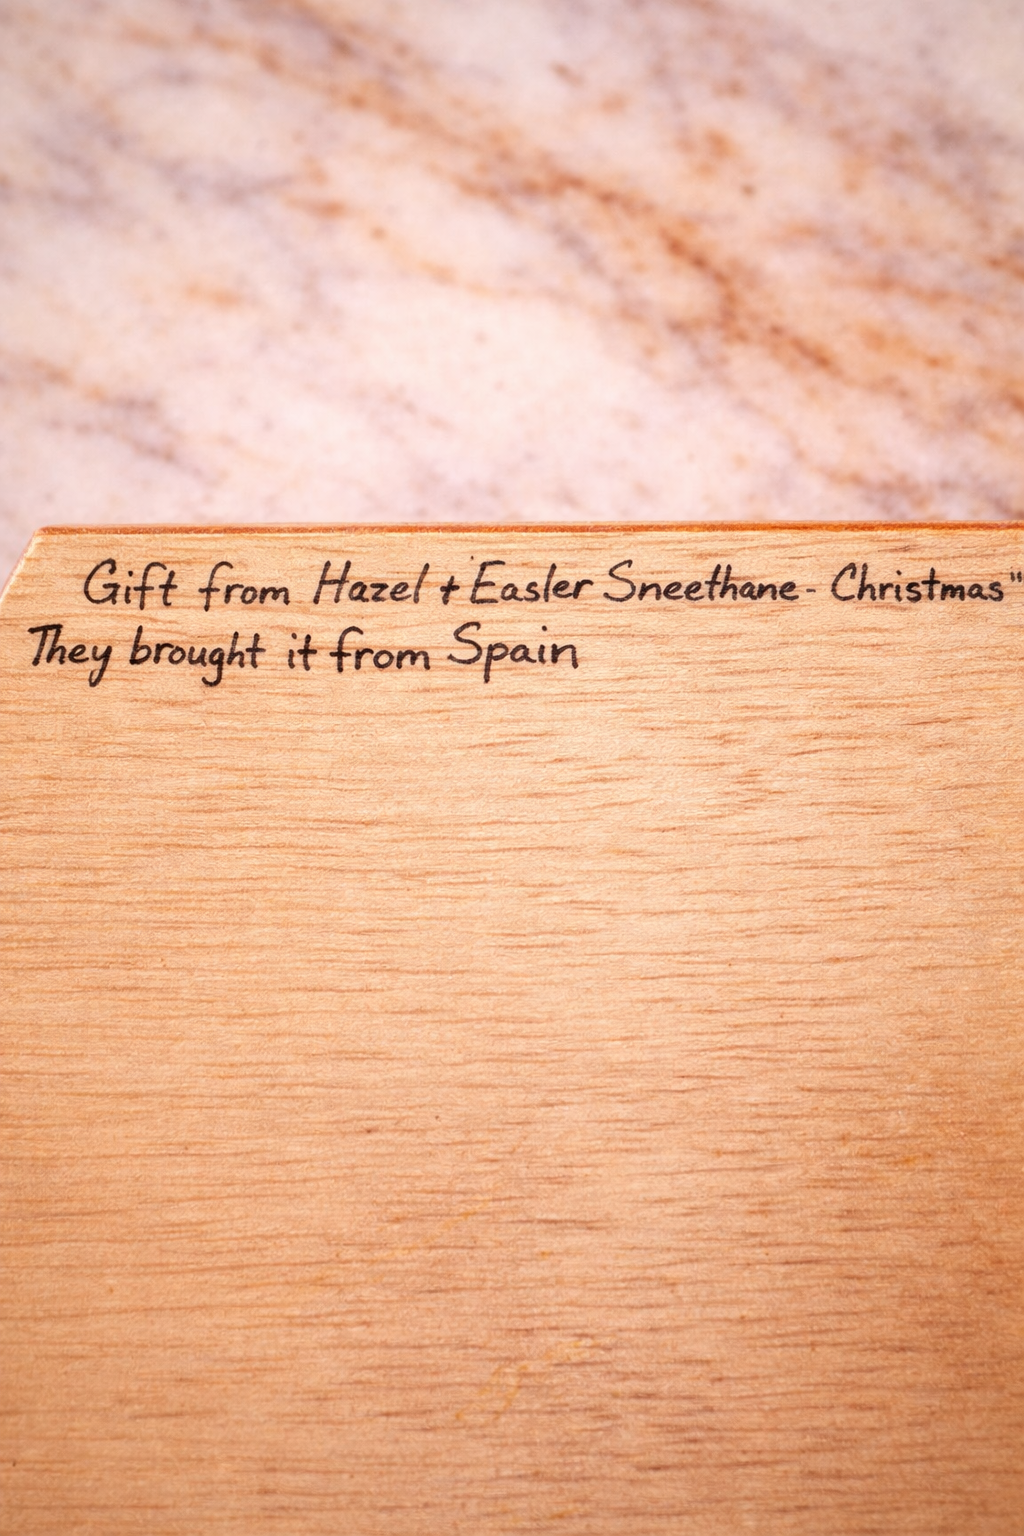 Gift from Hazel + Easler Sneethane - Christmas"
They brought it from Spain